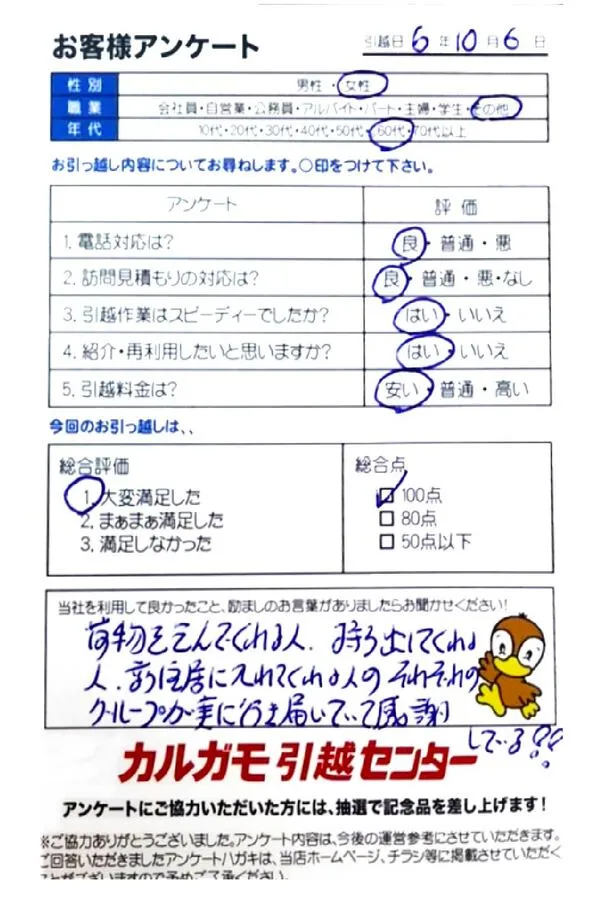 お客様アンケート
引越日 6年10月6日
性別 男性・女性
職業 会社員・自営業・公務員・アルバイト・パート・主婦・学生・その他
年代 10代・20代・30代・40代・50代・60代・70代以上
お引っ越し内容についてお尋ねします。○印をつけて下さい。
アンケート 評価
1. 電話対応は? 良・普通・悪
2. 訪問見積もりの対応は? 良・普通・悪・なし
3. 引越作業はスピーディーでしたか? はい・いいえ
4. 紹介・再利用したいと思いますか? はい・いいえ
5. 引越料金は? 安い・普通・高い
今回のお引っ越しは、、
総合評価
1. 大変満足した
2. まぁまぁ満足した
3. 満足しなかった
総合点
100点
80点
50点以下
当社を利用して良かったこと、励ましのお言葉がありましたらお聞かせください!
荷物を込んでくれる人、持ち出してくれる
人、新住居に入れてくれる人のそれぞれの
グループが実に行き届いていて感謝
している!!
カルガモ引越センター
アンケートにご協力いただいた方には、抽選で記念品を差し上げます!
※ご協力ありがとうございました。アンケート内容は、今後の運営参考にさせていただきます。
ご回答いただきましたアンケートハガキは、当店ホームページ、チラシ等に掲載させていただく
ことがございますので予めご了承ください。